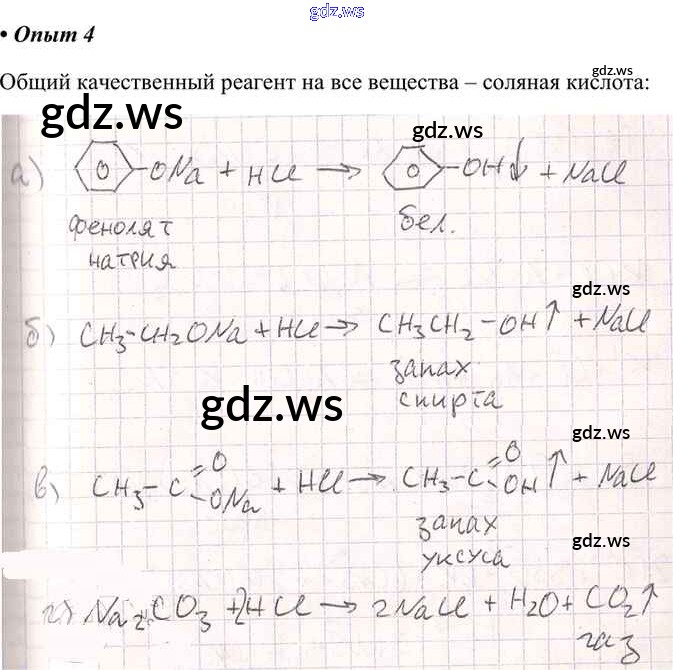 gdz.ws
• Опыт 4
gdz.ws
Общий качественный реагент на все вещества – соляная кислота:
gdz.ws
gdz.ws
а) O -ONa + HCl → O -OH↓ + NaCl
фенолят бел.
натрия
gdz.ws
б) CH3-CH2ONa + HCl → CH3CH2-OH↑ + NaCl
запах
спирта
gdz.ws
gdz.ws
в) CH3-C=O ONa + HCl → CH3-C=O OH↑ + NaCl
запах
уксуса
gdz.ws
г) Na2CO3 + 2HCl → 2NaCl + H2O + CO2↑
газ